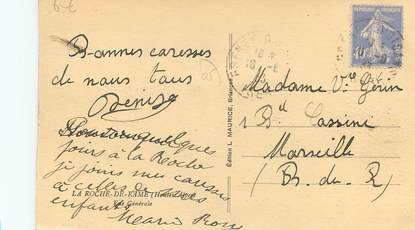 6-E
Bonnes caresses
de nous tous
Denise
quelques
jours à la Roche
je joins mes caresses
à celles de
enfants
Marie Rose
LA ROCHE-DE-RAME (Hautes-Alpes)
Vue Générale
Edition L. MAURICE, Briançon
Madame Vve Gérin
1 Bd Cassini
Marseille
(B. du R)